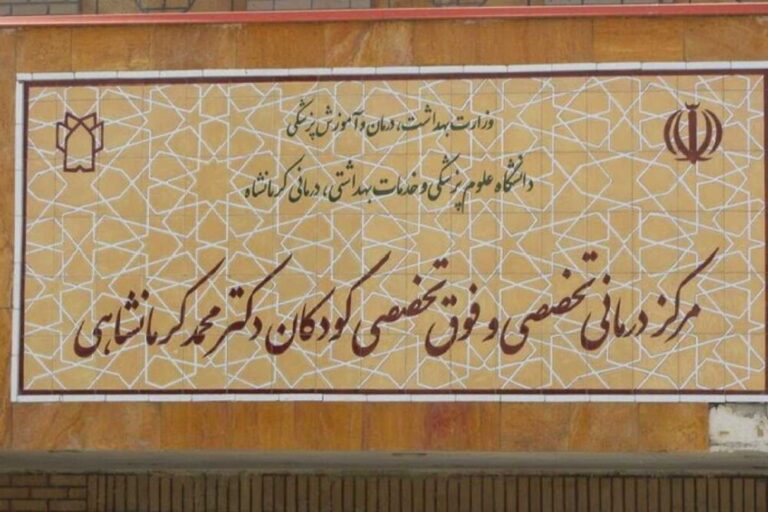 وزارت بهداشت، درمان و آموزش پزشکی
دانشگاه علوم پزشکی و خدمات بهداشتی، درمانی کرمانشاه
مرکز درمانی تخصصی و فوق تخصصی کودکان دکتر محمد کرمانشاهی